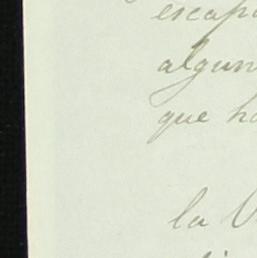 escap
algun
que ha
la V